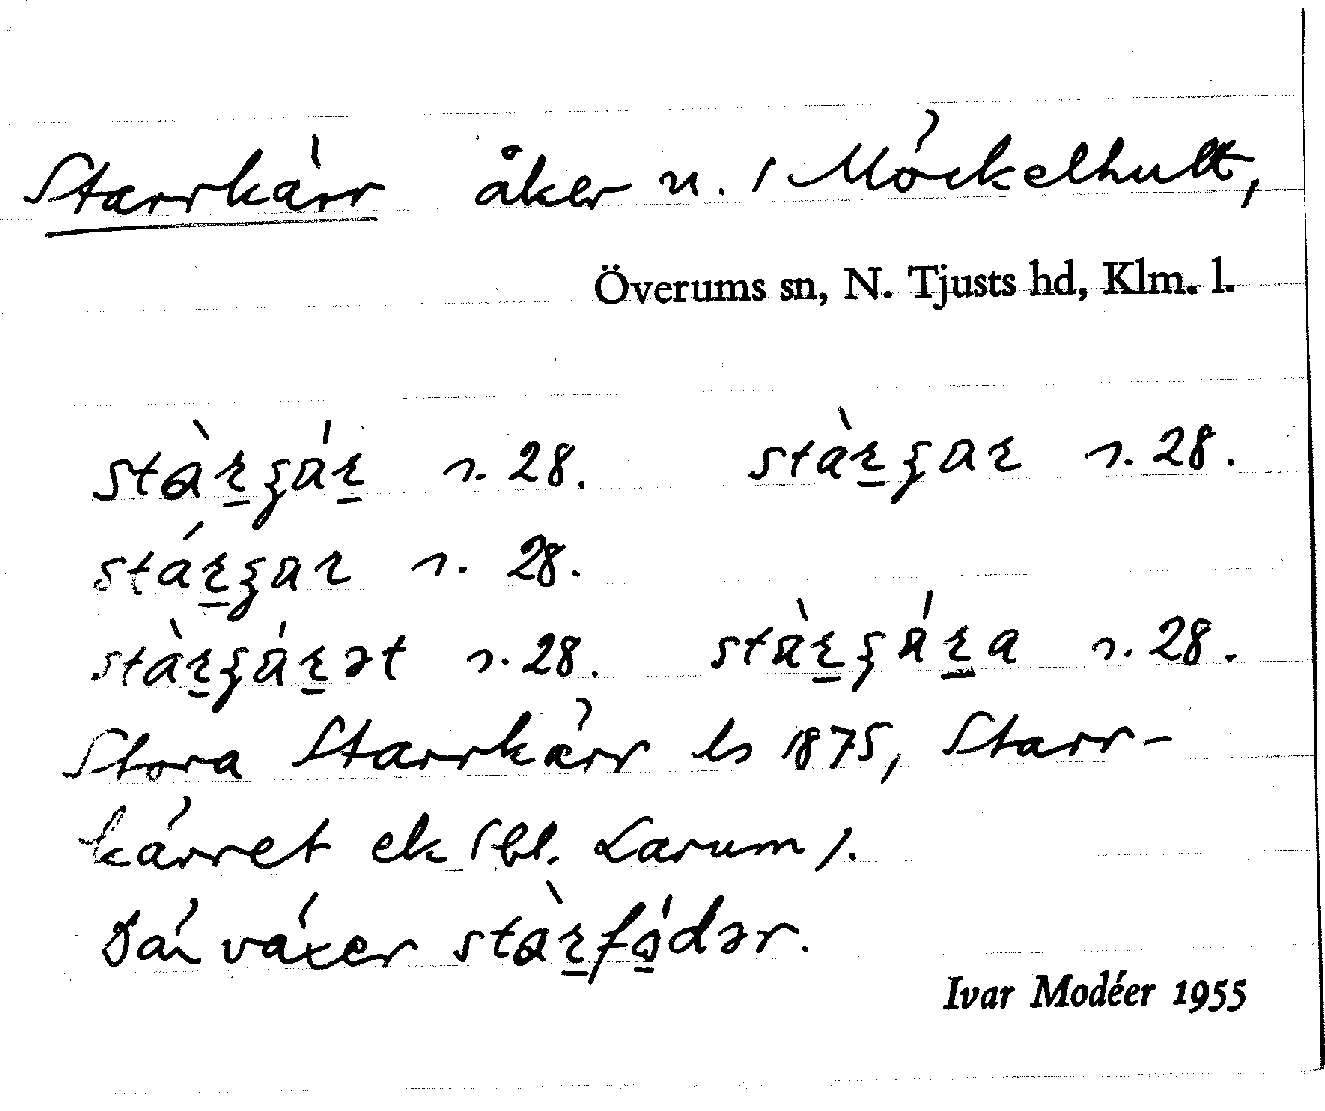 Starrkärr åker n. i Möckelhult,
Överums sn, N. Tjusts hd, Klm. l.
stàrʒár n. 28. stàrʒar n. 28.
stárʒar n. 28.
stàrʒárət n. 28. stàrʒára n. 28.
Stora Starrkärr ls 1875, Starr-
kärret ek (bl. Larum).
Där växer stàrfódər.
Ivar Modéer 1955